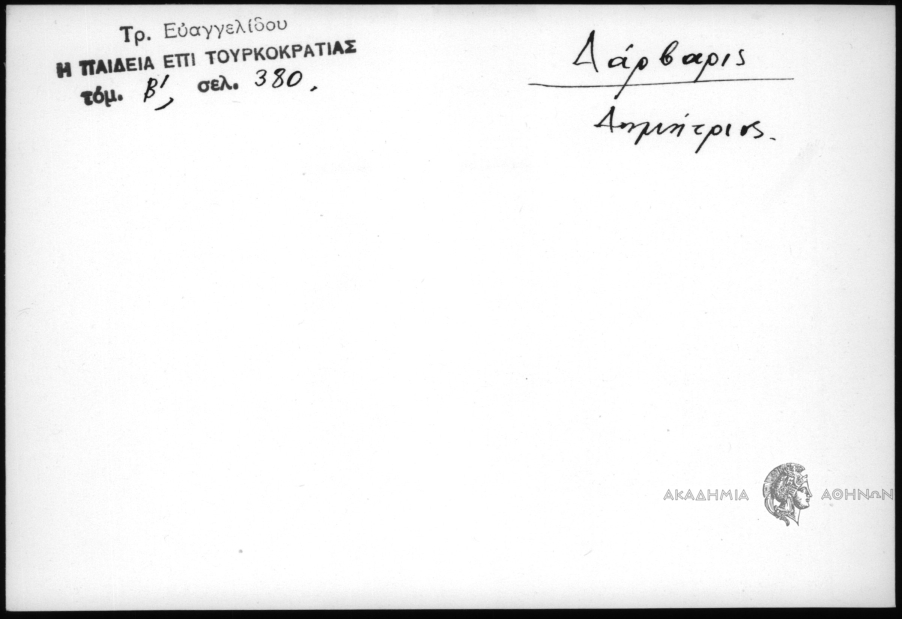 Τρ. Εὐαγγελίδου
Η ΠΑΙΔΕΙΑ ΕΠΙ ΤΟΥΡΚΟΚΡΑΤΙΑΣ
τόμ. Β', σελ. 380.
Δάρβαρις
Δημήτριος.
ΑΚΑΔΗΜΙΑ ΑΘΗΝΩΝ